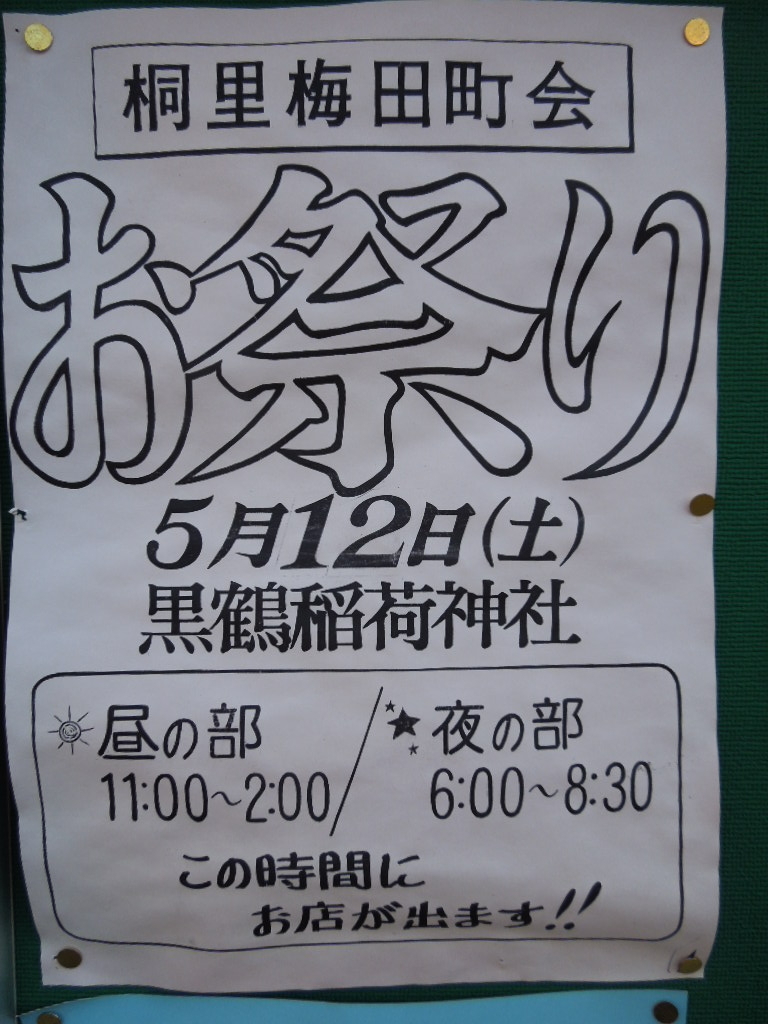 桐里梅田町会
お祭り
5月12日(土)
黒鶴稲荷神社
昼の部 / 夜の部
11:00～2:00 6:00～8:30
この時間に
お店が出ます!!